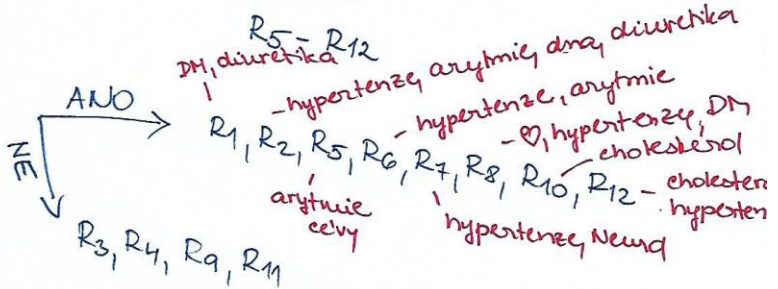 R5 – R12
DM, diuretika
hypertenze, arytmie, dna, diuretika
ANO
hypertenze, arytmie
R1, R2, R5, R6, R7, R8, R10, R12
♡, hypertenze, DM
cholesterol
cholester
hyperten
NE
arytmie
cévy
hypertenze,
R3, R4, R9, R11